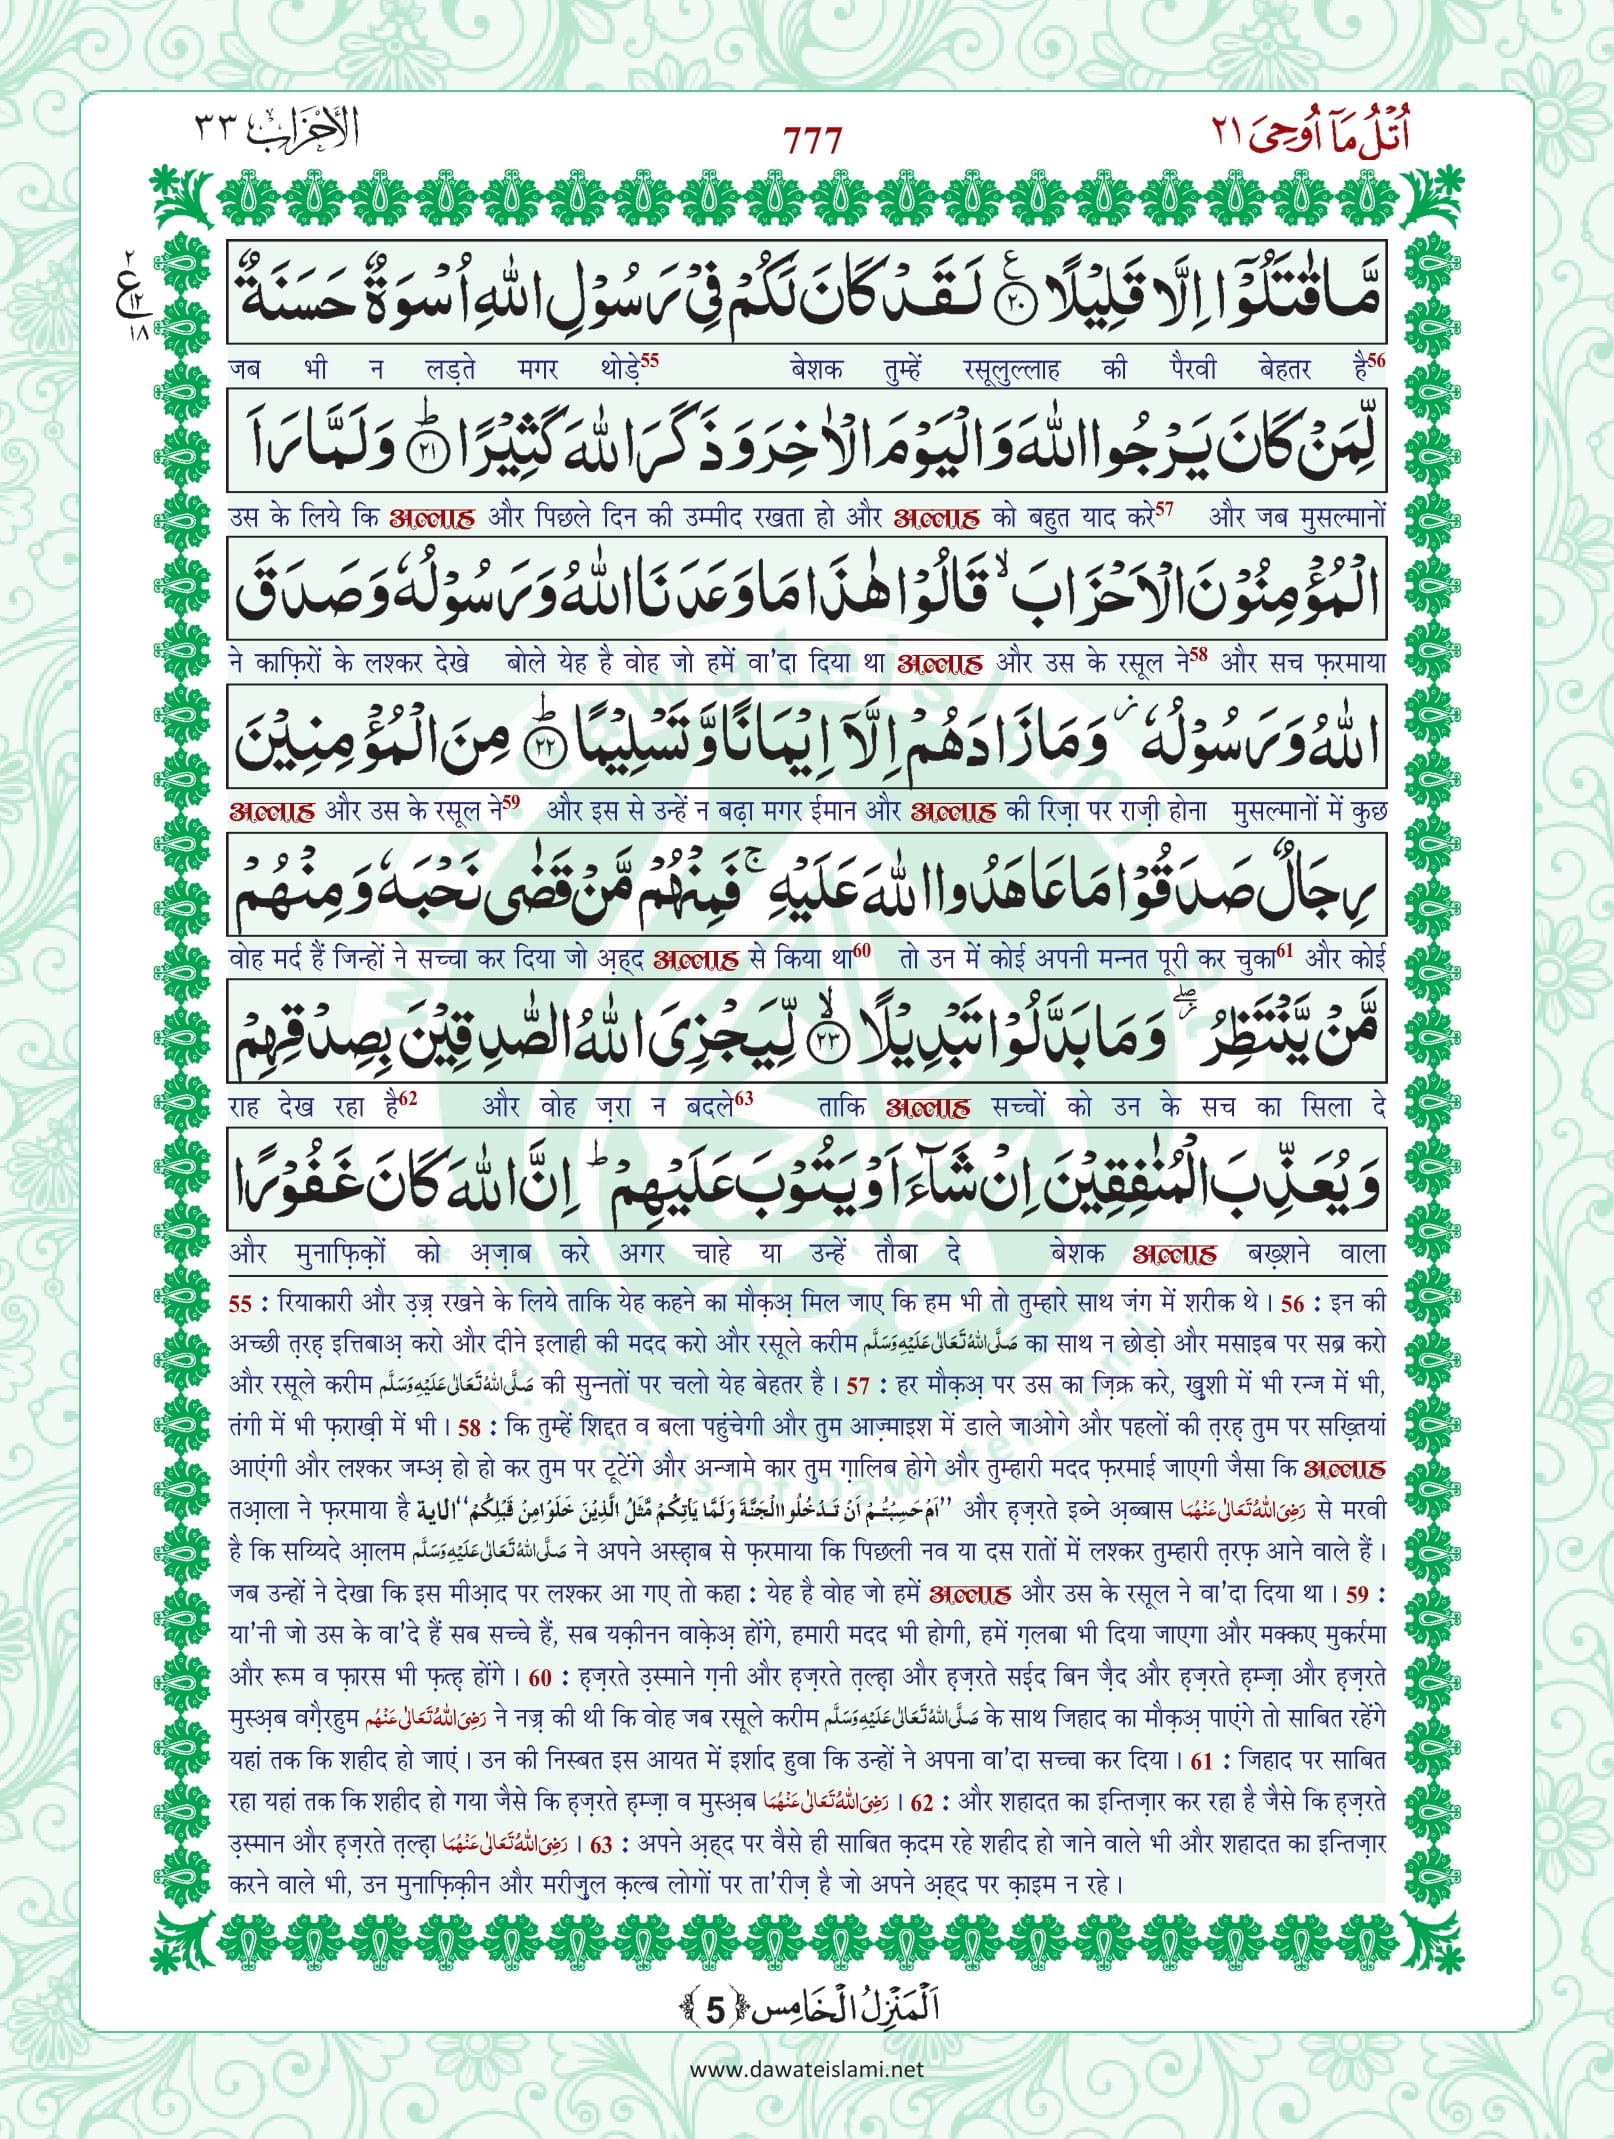 اُتْلُ مَآ اُوْحِیَ ٢١
777
الاَحْزَاب ٣٣
مَّا قٰتَلُوْۤا اِلَّا قَلِیْلًا ﴿۲۰﴾ لَقَدْ كَانَ لَكُمْ فِیْ رَسُوْلِ اللّٰهِ اُسْوَةٌ حَسَنَةٌ
ع ٢ ١٢ ١٨
जब भी न लड़ते मगर थोड़े55 बेशक तुम्हें रसूलुल्लाह की पैरवी बेहतर है56
لِّمَنْ كَانَ یَرْجُوا اللّٰهَ وَ الْیَوْمَ الْاٰخِرَ وَ ذَكَرَ اللّٰهَ كَثِیْرًا ﴿ؕ۲۱﴾ وَ لَمَّا رَاَ
उस के लिये कि अल्लाह और पिछले दिन की उम्मीद रखता हो और अल्लाह को बहुत याद करे57 और जब मुसल्मानों
الْمُؤْمِنُوْنَ الْاَحْزَابَ ۙ قَالُوْا هٰذَا مَا وَعَدَنَا اللّٰهُ وَ رَسُوْلُهٗ وَ صَدَقَ
ने काफ़िरों के लश्कर देखे बोले येह है वोह जो हमें वा'दा दिया था अल्लाह और उस के रसूल ने58 और सच फ़रमाया
اللّٰهُ وَ رَسُوْلُهٗ ؗ وَ مَا زَادَهُمْ اِلَّاۤ اِیْمَانًا وَّ تَسْلِیْمًا ﴿ؕ۲۲﴾ مِنَ الْمُؤْمِنِیْنَ
अल्लाह और उस के रसूल ने59 और इस से उन्हें न बढ़ा मगर ईमान और अल्लाह की रिज़ा पर राज़ी होना मुसल्मानों में कुछ
رِجَالٌ صَدَقُوْا مَا عَاهَدُوا اللّٰهَ عَلَیْهِ ۚ فَمِنْهُمْ مَّنْ قَضٰى نَحْبَهٗ وَ مِنْهُمْ
वोह मर्द हैं जिन्हों ने सच्चा कर दिया जो अ़ह्द अल्लाह से किया था60 तो उन में कोई अपनी मन्नत पूरी कर चुका61 और कोई
مَّنْ یَّنْتَظِرُ ۖؗ وَ مَا بَدَّلُوْا تَبْدِیْلًا ﴿ۙ۲۳﴾ لِّیَجْزِیَ اللّٰهُ الصّٰدِقِیْنَ بِصِدْقِهِمْ
राह देख रहा है62 और वोह ज़रा न बदले63 ताकि अल्लाह सच्चों को उन के सच का सिला दे
وَ یُعَذِّبَ الْمُنٰفِقِیْنَ اِنْ شَآءَ اَوْ یَتُوْبَ عَلَیْهِمْ ؕ اِنَّ اللّٰهَ كَانَ غَفُوْرًا
और मुनाफ़िक़ों को अ़ज़ाब करे अगर चाहे या उन्हें तौबा दे बेशक अल्लाह बख़्शने वाला
55 : रियाकारी और उ़ज़्र रखने के लिये ताकि येह कहने का मौक़अ़ मिल जाए कि हम भी तो तुम्हारे साथ जंग में शरीक थे। 56 : इन की
अच्छी त़रह़ इत्तिबाअ़ करो और दीने इलाही की मदद करो और रसूले करीम صَلَّى اللهُ تَعَالٰى عَلَيْهِ وَسَلَّم का साथ न छोड़ो और मसाइब पर सब्र करो
और रसूले करीम صَلَّى اللهُ تَعَالٰى عَلَيْهِ وَسَلَّم की सुन्नतों पर चलो येह बेहतर है। 57 : हर मौक़अ़ पर उस का ज़िक्र करे, खुशी में भी रन्ज में भी,
तंगी में भी फ़राख़ी में भी। 58 : कि तुम्हें शिद्दत व बला पहुंचेगी और तुम आज़्माइश में डाले जाओगे और पहलों की त़रह़ तुम पर सख़्तियां
आएंगी और लश्कर जम्अ़ हो हो कर तुम पर टूटेंगे और अन्जामे कार तुम ग़ालिब होगे और तुम्हारी मदद फ़रमाई जाएगी जैसा कि अल्लाह
तआ़ला ने फ़रमाया है "اَمْ حَسِبْتُمْ اَنْ تَدْخُلُوا الْجَنَّةَ وَلَمَّا يَاْتِكُمْ مَّثَلُ الَّذِيْنَ خَلَوْا مِنْ قَبْلِكُمْ" الاية और ह़ज़रते इब्ने अ़ब्बास رَضِىَ اللهُ تَعَالٰى عَنْهُمَا से मरवी
है कि सय्यिदे आ़लम صَلَّى اللهُ تَعَالٰى عَلَيْهِ وَسَلَّم ने अपने अस्ह़ाब से फ़रमाया कि पिछली नव या दस रातों में लश्कर तुम्हारी त़रफ़ आने वाले हैं।
जब उन्हों ने देखा कि इस मीआ़द पर लश्कर आ गए तो कहा : येह है वोह जो हमें अल्लाह और उस के रसूल ने वा'दा दिया था। 59 :
या'नी जो उस के वा'दे हैं सब सच्चे हैं, सब यक़ीनन वाक़ेअ़ होंगे, हमारी मदद भी होगी, हमें ग़लबा भी दिया जाएगा और मक्कए मुकर्रमा
और रूम व फ़ारस भी फ़त्ह़ होंगे। 60 : ह़ज़रते उ़स्माने ग़नी और ह़ज़रते त़ल्ह़ा और ह़ज़रते सईद बिन ज़ैद और ह़ज़रते ह़म्ज़ा और ह़ज़रते
मुस्अ़ब वग़ैरहुम رَضِىَ اللهُ تَعَالٰى عَنْهُم ने नज़्र की थी कि वोह जब रसूले करीम صَلَّى اللهُ تَعَالٰى عَلَيْهِ وَسَلَّم के साथ जिहाद का मौक़अ़ पाएंगे तो साबित रहेंगे
यहां तक कि शहीद हो जाएं। उन की निस्बत इस आयत में इर्शाद हुवा कि उन्हों ने अपना वा'दा सच्चा कर दिया। 61 : जिहाद पर साबित
रहा यहां तक कि शहीद हो गया जैसे कि ह़ज़रते ह़म्ज़ा व मुस्अ़ब رَضِىَ اللهُ تَعَالٰى عَنْهُمَا। 62 : और शहादत का इन्तिज़ार कर रहा है जैसे कि ह़ज़रते
उ़स्मान और ह़ज़रते त़ल्ह़ा رَضِىَ اللهُ تَعَالٰى عَنْهُمَا। 63 : अपने अ़ह्द पर वैसे ही साबित क़दम रहे शहीद हो जाने वाले भी और शहादत का इन्तिज़ार
करने वाले भी, उन मुनाफ़िक़ीन और मरीज़ुल क़ल्ब लोगों पर ता'रीज़ है जो अपने अ़ह्द पर क़ाइम न रहे।
اَلْمَنْزِلُ الْخَامِس ﴿5﴾
www.dawateislami.net